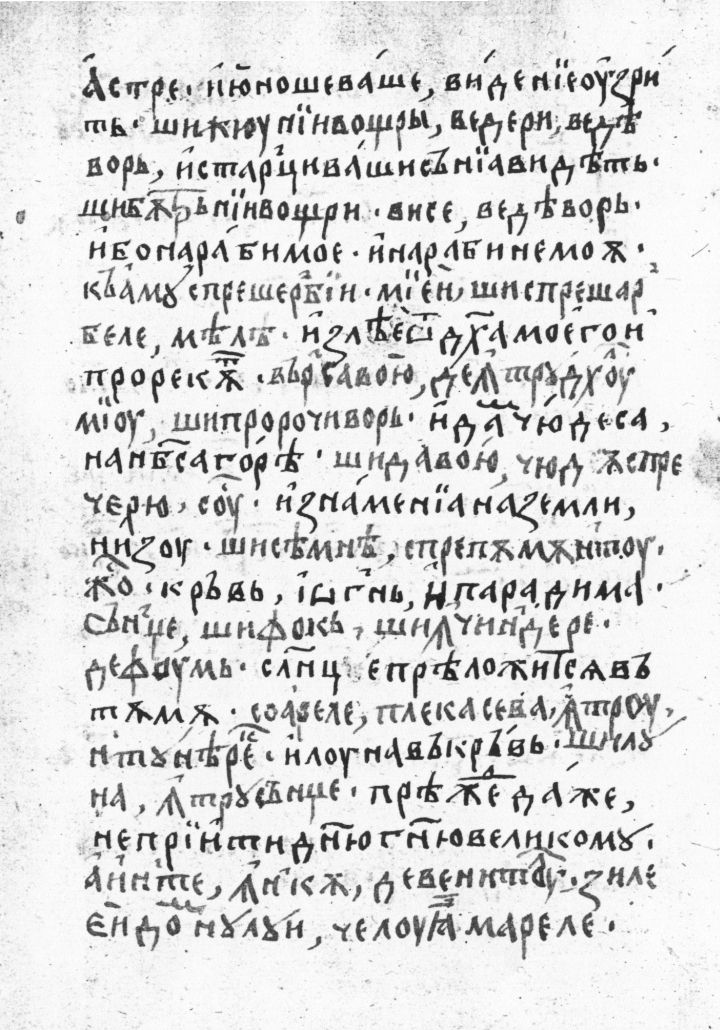 астре · июношеваше, виденїеоузри
ть · шижюунїивощры, ведери, ведѣ
ворь, истарцивашисънїавидѣть ·
щибѫтрьнїивощри · висе, ведѣворь ·
ибонарабимое · инарабинемоѫ ·
къамꙋспрешербїи · мїей, шиспрешар
беле, мѣлѣ · излѣеѿдх҃амоегои
прорекѫт · върсавою, деꙟтрꙋдхоу
мїоу, шипророчиворь · идамчюдеса,
нанб҃сагорѣ · шидавою, чюд ѫспре
черю, соу · изнаменїаназемли,
низоу · шисѣмнѣ, спрепѫмѫнтоу ·
жо · кръвь, іѡгнь, ипарадима ·
сънџе, шифокь, шиꙟчиндере ·
дефоумь · слнце прѣложитсѧвъ
тѫмѫ · соареле, плекасева, ꙟтроу,
нтꙋнѣрек · илоунавъкръвь · шилꙋ
на, ꙟтрꙋсънџе · прѣждедаже,
непрїитидн҃югн҃ювеликомꙋ ·
аинте, ꙟнкѫ, девенитоу · зиле
ейдомнꙋлꙋи, челоуꙗмареле ·